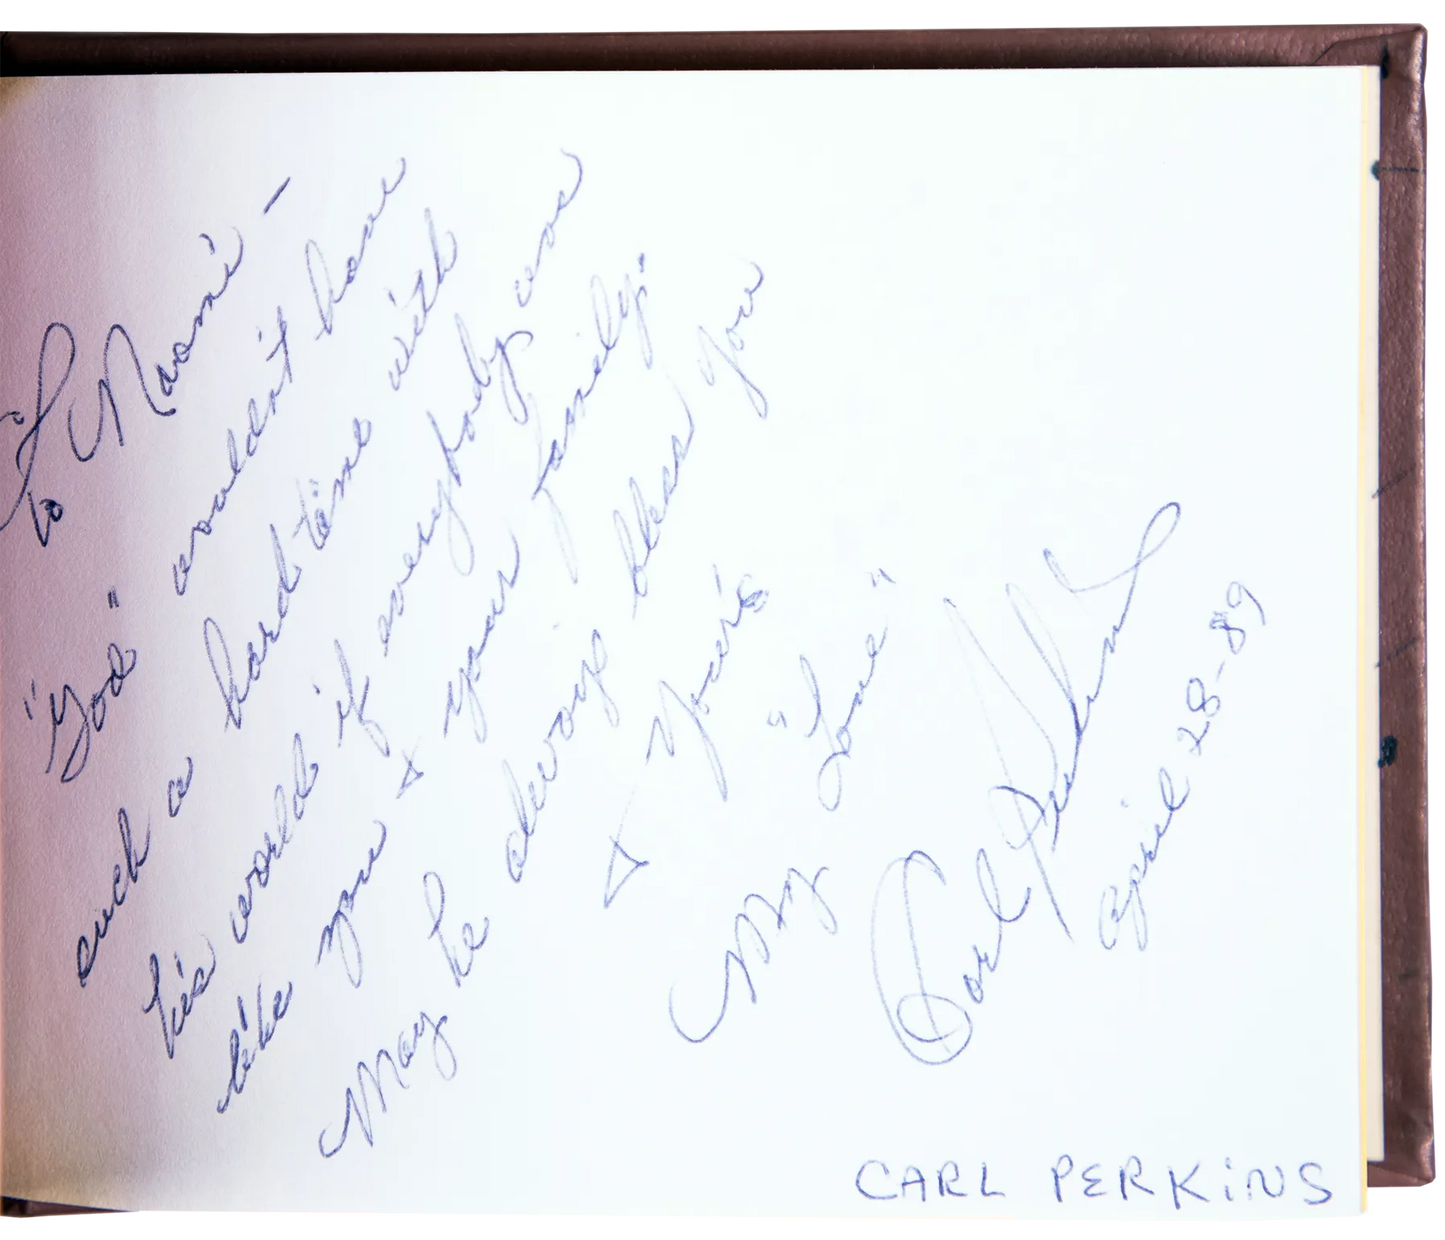 to Naomi —
"God" wouldn't have
such a hard time with
his world if everybody was
like you & your family.
May he always bless you
& your's
My "Love"
Carl Perkins
April 28-89
CARL PERKiNS